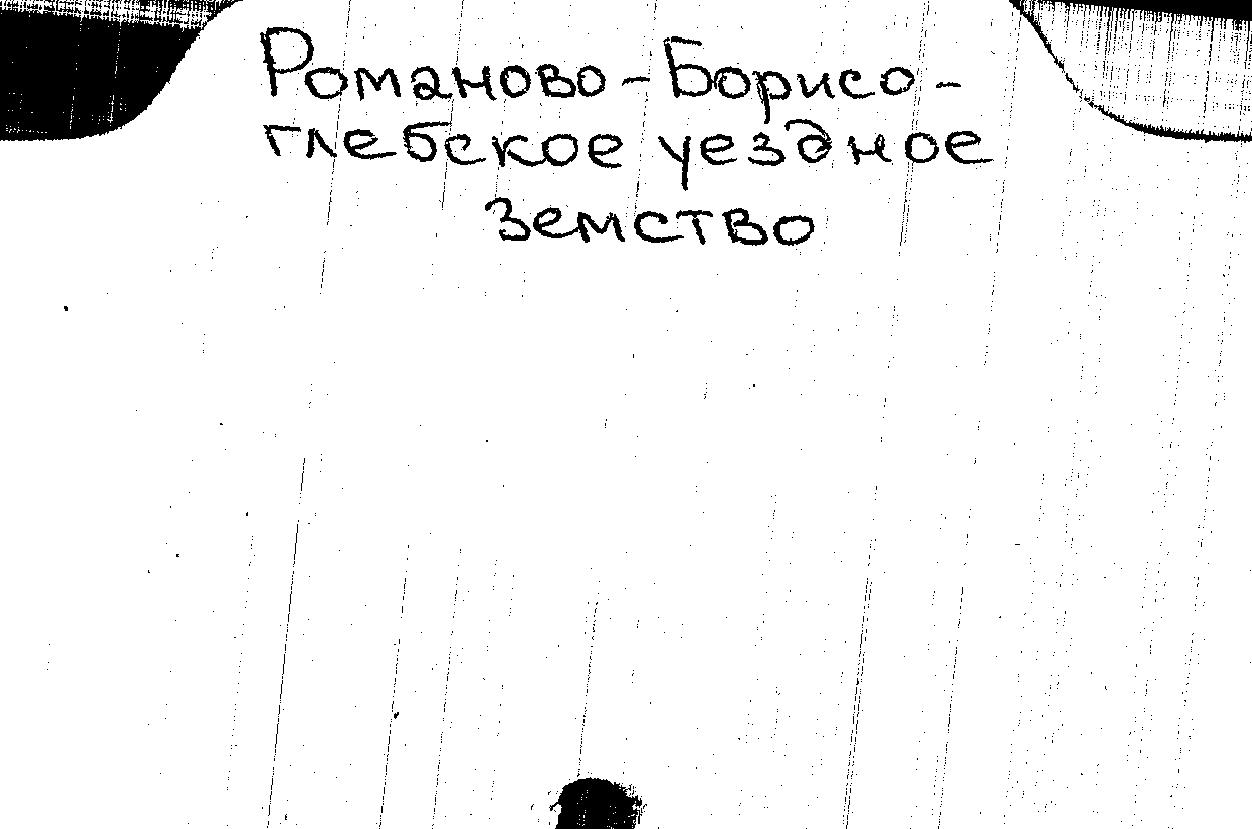 Романово-Борисо-
глебское уездное
земство